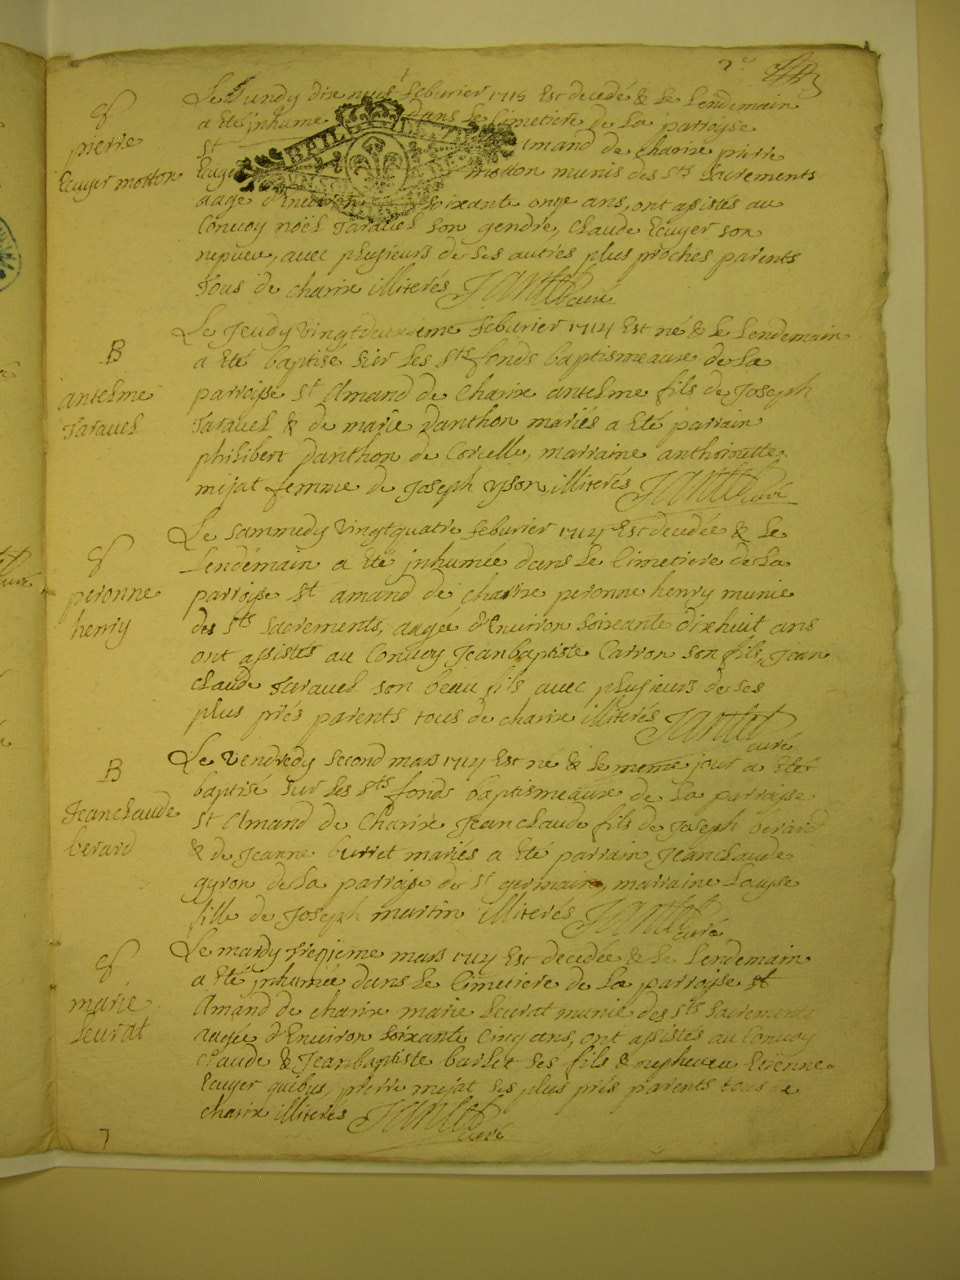 2e
Le Lundy dix neuf feburier 1714 Est decedé & Le Lendemain
a Eté inhumé dans le Cimetiere de La parroisse
st amand de charix pierre
Ecuyer motton munis des Sts Sacrements
aagé d'Environ soixante onze ans, ont assistés au
Convoy noël Taravel son gendre, Claude Ecuyer son
nepveu, avec plusieurs de ses autres plus proches parents
tous de charix illiterés Jantet curé
S
pierre
Ecuyer motton
Le Jeudy vingt deuxieme feburier 1714 Est né & le Lendemain
a Eté baptisé sur les Sts fonds baptismeaux de La
parroisse St Amand de Charix antelme fils de Joseph
Taravel & de marie Danthon mariés a Eté parrain
philibert Danthon de Corcelle, marraine anthoinette
mijat femme de Joseph yson, illiterés Jantet curé
B
antelme
Taravel
Le sammedy vingtquatre feburier 1714 Est decedée & Le
Lendemain a Eté inhumée dans Le Cimetiere de La
parroisse St amand de charix peronne henry munie
des Sts Sacrements, aagée d'Environ soixante dixhuit ans
ont assistés au Convoy Jeanbaptiste Carron son fils, Jean
claude Taravel son beau fils avec plusieurs de ses
plus prés parents tous de charix illiterés Jantet
curé
S
peronne
henry
Le vendredy second mars 1714 Est né & le meme jour a Eté
baptisé sur les Sts fonds baptismeaux de La parroisse
St Amand de Charix Jeanclaude fils de Joseph berard
& de Jeanne burret mariés a Eté parrain Jeanclaude
gyron de La parroise de St germain, marraine Louyse
fille de Joseph martin illiterés Jantet curé
B
Jeanclaude
berard
Le mardy treizieme mars 1714 Est decedée & Le Lendemain
a Eté inhumée dans Le Cimetiere de La parroisse st
Amand de charix marie Leurat munie des Sts Sacrements
aagée d'Environ soixante Cinq ans, ont assistés au Convoy
Claude & Jeanbaptiste barlet ses fils & nepheveu Etienne
Ecuyer pierre mijat ses plus prés parents tous de
charix illiterés Jantet
curé
S
marie
Leurat
7